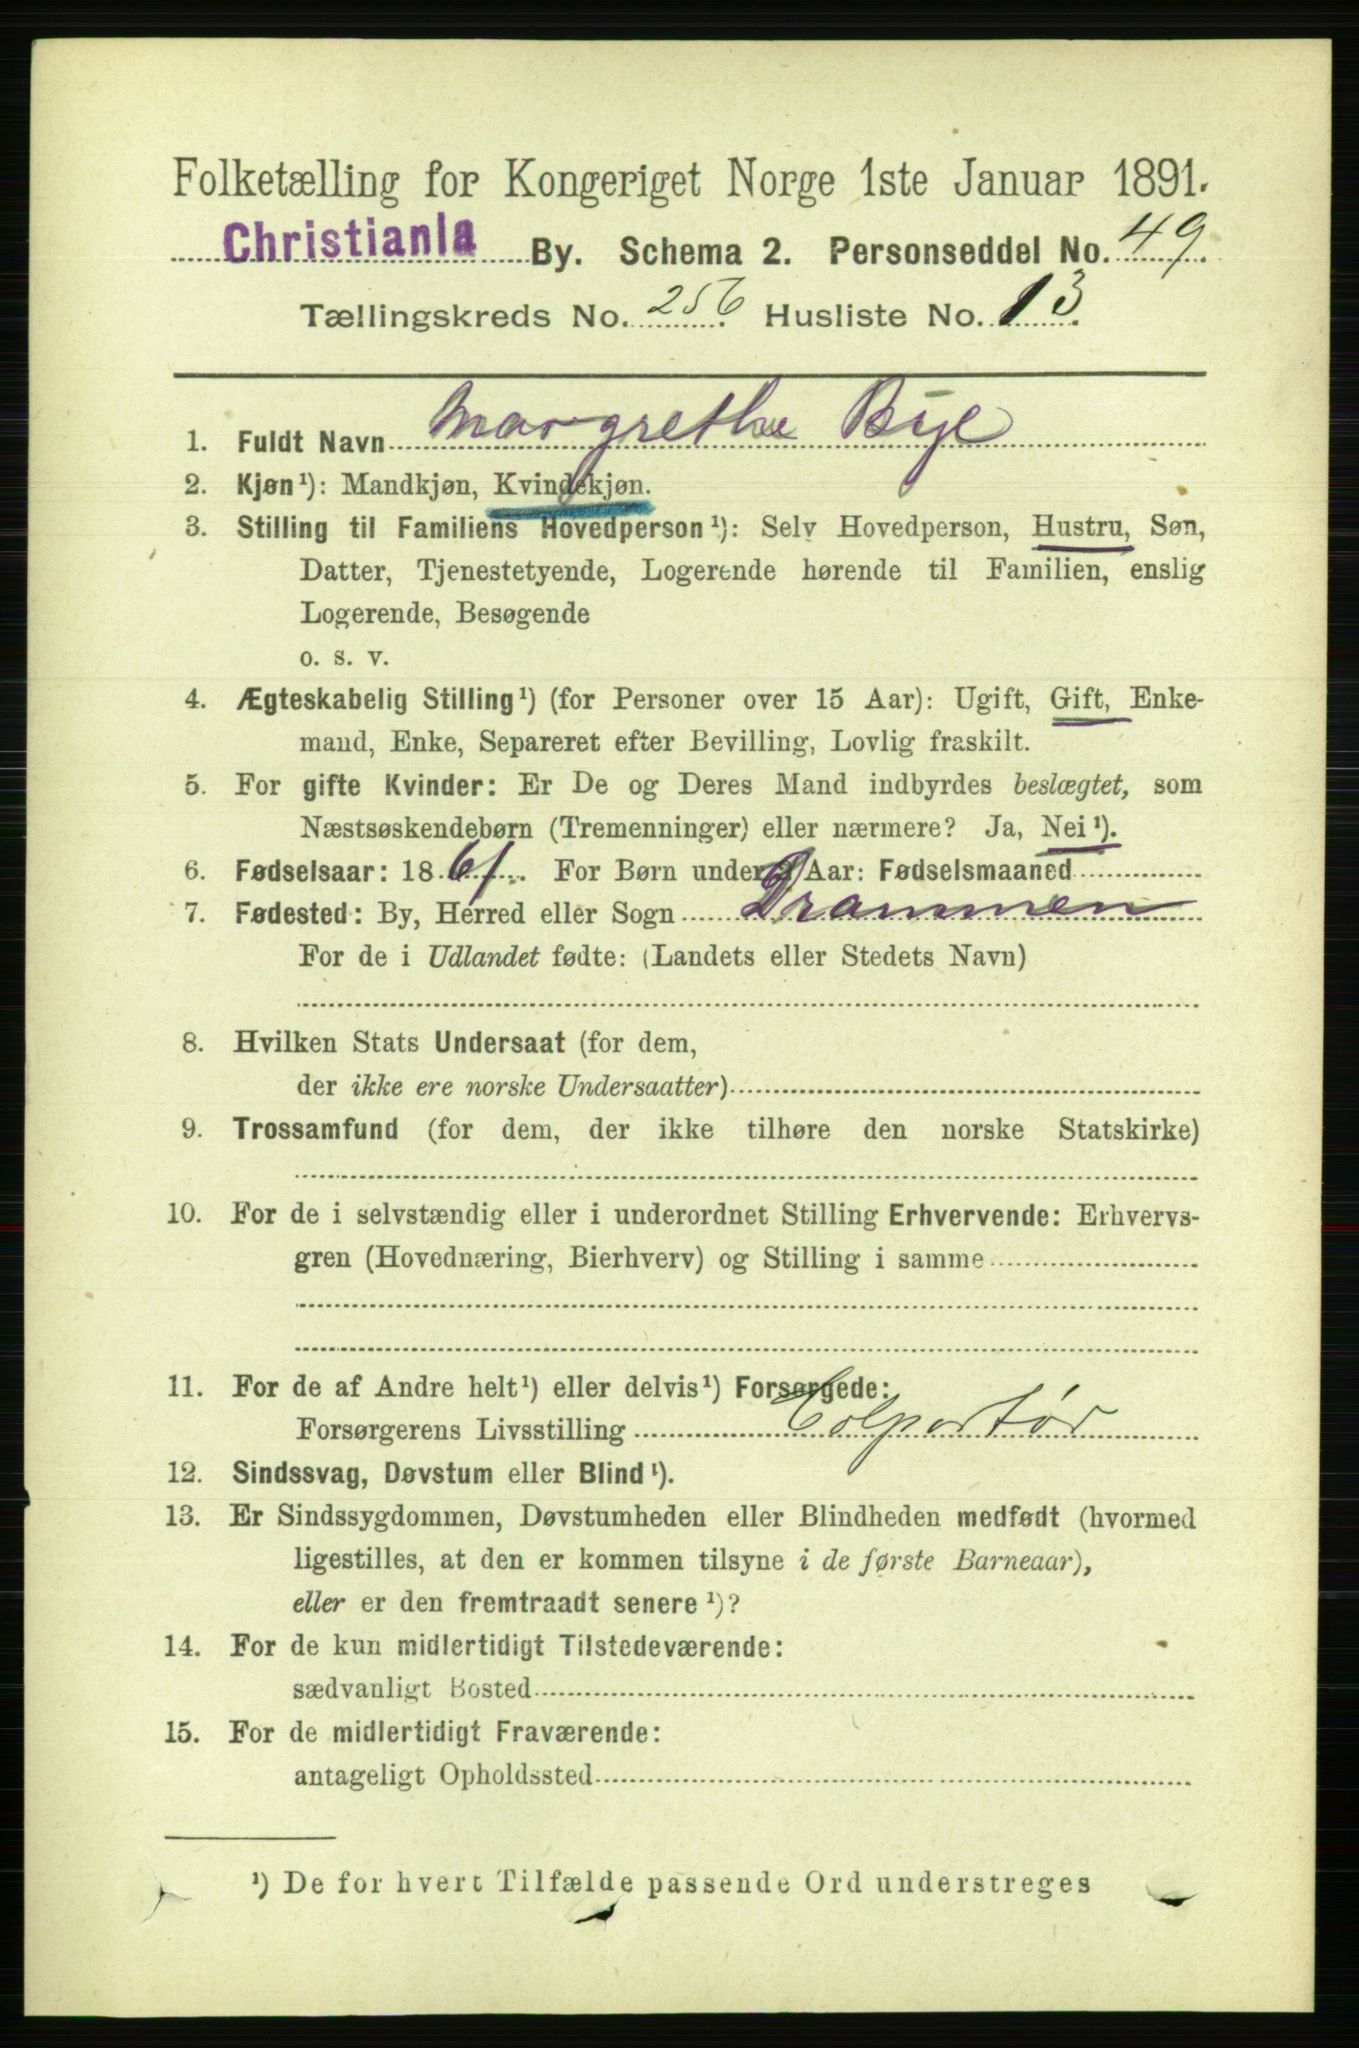 Folketælling for Kongeriget Norge 1ste Januar 1891.
Christiania By. Schema 2. Personseddel No. 49.
Tællingskreds No. 256. Husliste No. 13.
1. Fuldt Navn Margrethe Bye
2. Kjøn¹): Mandkjøn, Kvindekjøn.
3. Stilling til Familiens Hovedperson¹): Selv Hovedperson, Hustru, Søn,
Datter, Tjenestetyende, Logerende hørende til Familien, enslig
Logerende, Besøgende
o. s. v.
4. Ægteskabelig Stilling¹) (for Personer over 15 Aar): Ugift, Gift, Enke-
mand, Enke, Separeret efter Bevilling, Lovlig fraskilt.
5. For gifte Kvinder: Er De og Deres Mand indbyrdes beslægtet, som
Næstsøskendebørn (Tremenninger) eller nærmere? Ja, Nei¹).
6. Fødselsaar: 1861. For Børn under 2 Aar: Fødselsmaaned
7. Fødested: By, Herred eller Sogn Drammen
For de i Udlandet fødte: (Landets eller Stedets Navn)
8. Hvilken Stats Undersaat (for dem,
der ikke ere norske Undersaatter)
9. Trossamfund (for dem, der ikke tilhøre den norske Statskirke)
10. For de i selvstændig eller i underordnet Stilling Erhvervende: Erhvervs-
gren (Hovednæring, Bierhverv) og Stilling i samme
11. For de af Andre helt¹) eller delvis¹) Forsørgede:
Forsørgerens Livsstilling Colportør
12. Sindssvag, Døvstum eller Blind¹).
13. Er Sindssygdommen, Døvstumheden eller Blindheden medfødt (hvormed
ligestilles, at den er kommen tilsyne i de første Barneaar),
eller er den fremtraadt senere¹)?
14. For de kun midlertidigt Tilstedeværende:
sædvanligt Bosted
15. For de midlertidigt Fraværende:
antageligt Opholdssted
¹) De for hvert Tilfælde passende Ord understreges